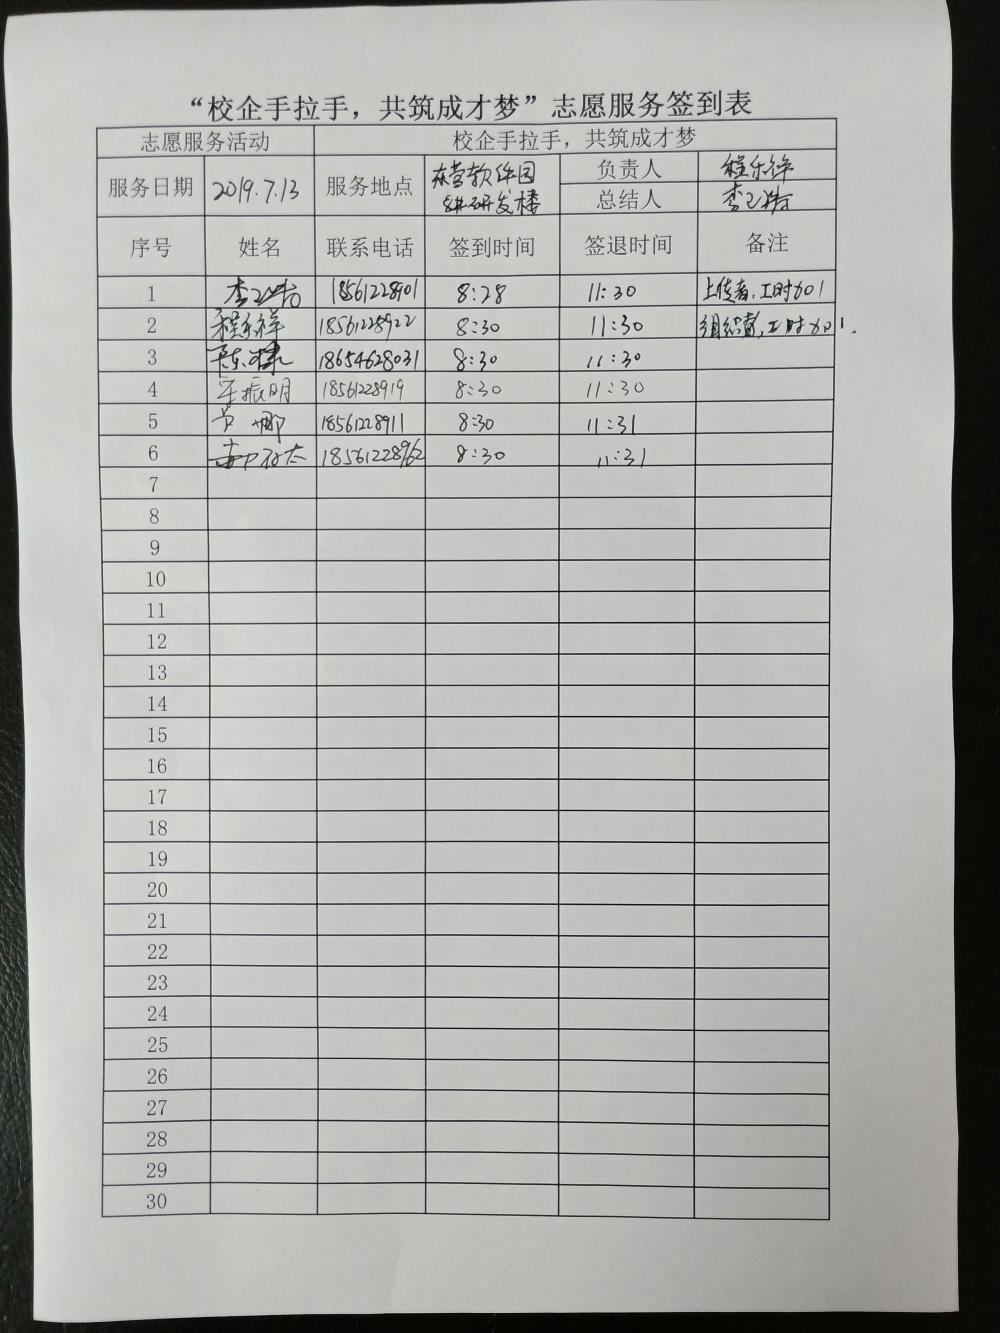 “校企手拉手，共筑成才梦”志愿服务签到表
志愿服务活动 校企手拉手，共筑成才梦
服务日期 2019.7.13 服务地点 东营软件园 研发楼 负责人 程乐祥
总结人 李
序号 姓名 联系电话 签到时间 签退时间 备注
1 李 18561228901 8:28 11:30 上传者,工时加1
2 程乐祥 18561228922 8:30 11:30 组织者,工时加1.
3 陈棣 18654628031 8:30 11:30
4 振明 18561228919 8:30 11:30
5 黄娜 18561228911 8:30 11:31
6 18561228962 8:30 11:31
7
8
9
10
11
12
13
14
15
16
17
18
19
20
21
22
23
24
25
26
27
28
29
30